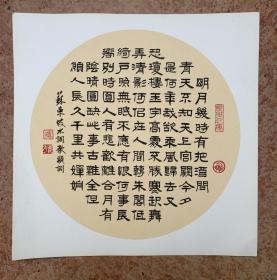 明月幾時有把酒問
青天不知天上宮闕今夕
是何年我欲乘風歸去又
恐瓊樓玉宇高處不勝寒起舞
弄清影何似在人間轉朱閣低
綺戶照無眠不應有恨何事長
別時圓人有悲歡離合月有
陰晴圓缺此事古難全但
願人長久千里共嬋娟
蘇東坡水調歌頭詞